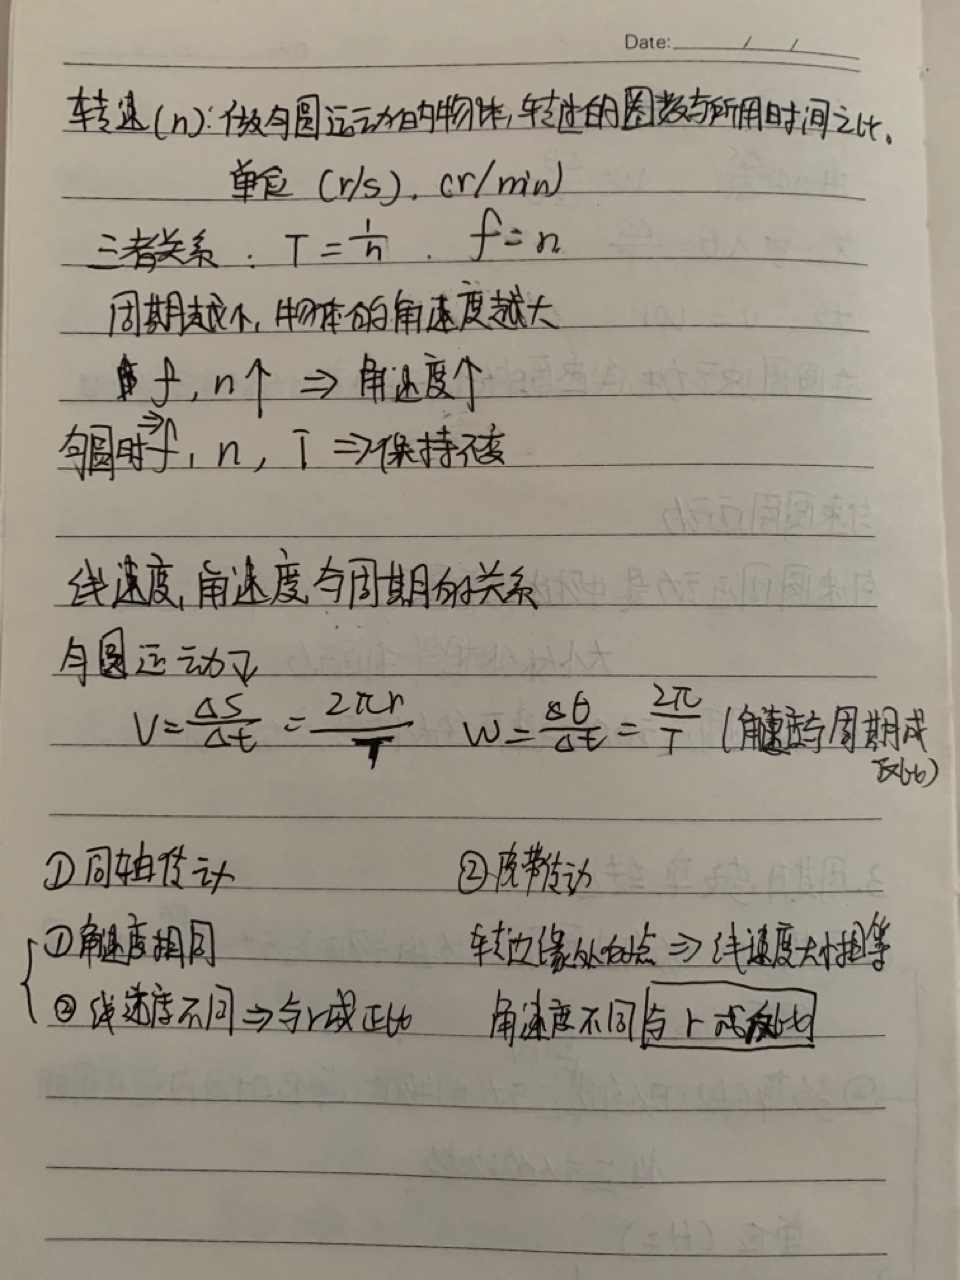 Date: / /
转速(n):做匀圆运动的物体,转过的圈数与所用时间之比.
单位 (r/s). (r/min)
三者关系: T=1/n . f=n
周期越小,物体的角速度越大
f,n↑ ⇒ 角速度↑
匀圆时⇒f, n, T ⇒保持不变
线速度,角速度与周期的关系
匀圆运动下
V=ΔS/Δt=2πr/T W=Δθ/Δt=2π/T (角速度与周期成反比)
①同轴传动 ②皮带传动
①角速度相同 转边缘处的点⇒线速度大小相等
②线速度不同⇒与r成正比 角速度不同与r成反比